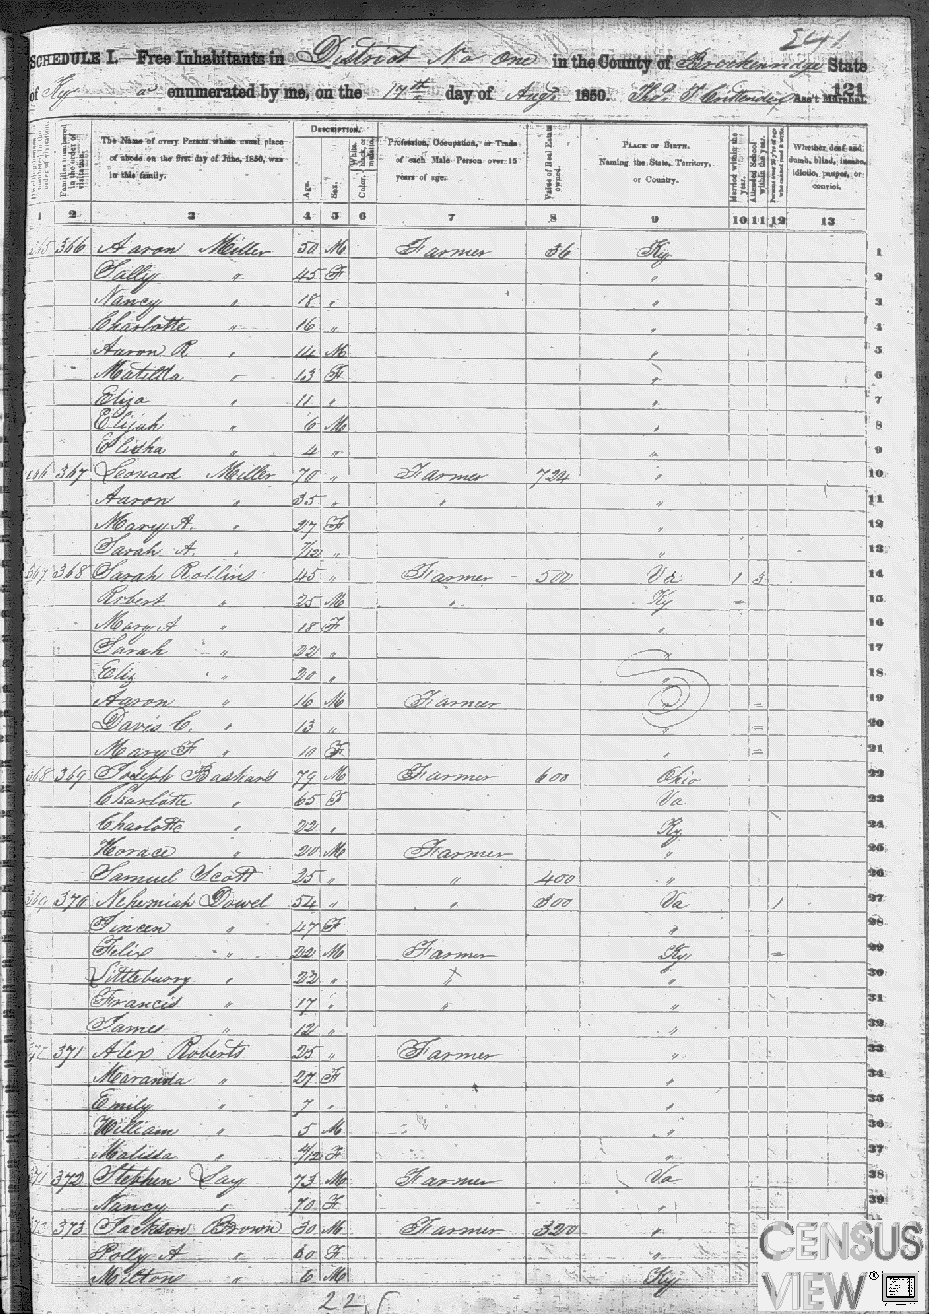 241
SCHEDULE I.—Free Inhabitants in District No One in the County of Breckenridge State
of Ky enumerated by me, on the 17th day of Augt 1850. Thos. Crittenden Ass't Marshal. 121
DESCRIPTION.
Dwelling-houses numbered in the order of visitation. Families numbered in the order of visitation. The Name of every Person whose usual place of abode on the first day of June, 1850, was in this family. Age. Sex. White, Color, black, or mulatto. Profession, Occupation, or Trade of each Male Person over 15 years of age. Value of Real Estate owned. PLACE OF BIRTH. Naming the State, Territory, or Country. Married within the year. Attended School within the year. Persons over 20 y'rs of age who cannot read & write. Whether deaf and dumb, blind, insane, idiotic, pauper, or convict.
1 2 3 4 5 6 7 8 9 10 11 12 13
365 366 Aaron Miller 50 M Farmer 36 Ky 1
Sally " 45 F " 2
Nancy " 18 " " 3
Charlotte " 16 " " 4
Aaron R " 14 M " 5
Matilda " 13 F " 6
Eliza " 11 " " 7
Elijah " 6 M " 8
Elisha " 4 " " 9
366 367 Leonard Miller 70 " Farmer 724 " 10
Aaron " 35 " " " 11
Mary A. " 27 F " 12
Sarah A. " 7/12 " " 13
367 368 Sarah Rollins 45 " Farmer 500 Va 1 3 14
Robert " 25 M " Ky 15
Mary A " 18 F " 16
Sarah " 22 " " 17
Eliz " 20 " " 18
Aaron " 16 M Farmer " = 19
Davis C. " 13 " " = 20
Mary F " 10 F " = 21
368 369 Joseph 79 M Farmer 600 Ohio 22
Charlotte " 65 F Va 23
Charlotte " 22 " Ky 24
Horace " 20 M Farmer " 25
Samuel Scott 25 " " 400 " 26
369 370 Nehemiah Dowel 54 " " 300 Va 1 27
Jincen " 47 F " 28
Felix " 22 M Farmer Ky = 29
Littlebury " 22 " " " 30
Francis " 17 " " " 31
James " 12 " " 32
370 371 Alex Roberts 25 " Farmer " 33
Maranda " 27 F " 34
Emily " 7 " " 35
William " 5 M " 36
Malissa " /12 F " 37
371 372 Stephen Lay 73 M Farmer Va 38
Nancy " 70 F " 39
372 373 Jackson Brown 30 M Farmer 3200 "
Polly A " 30 F "
Milton " 6 M Ky
22
CENSUS
VIEW ®